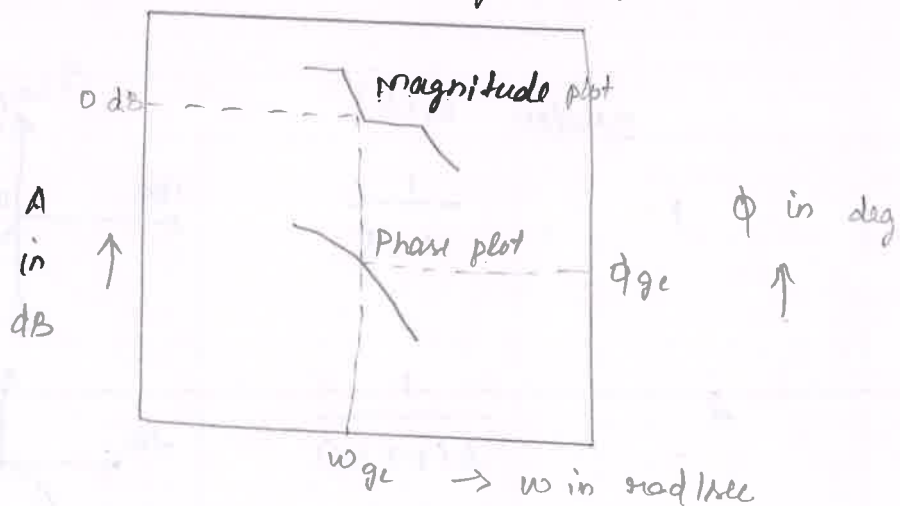 0 dB
Magnitude plot
A
in
dB
Phase plot
ϕ in deg
ϕgc
wgc → w in rad/sec